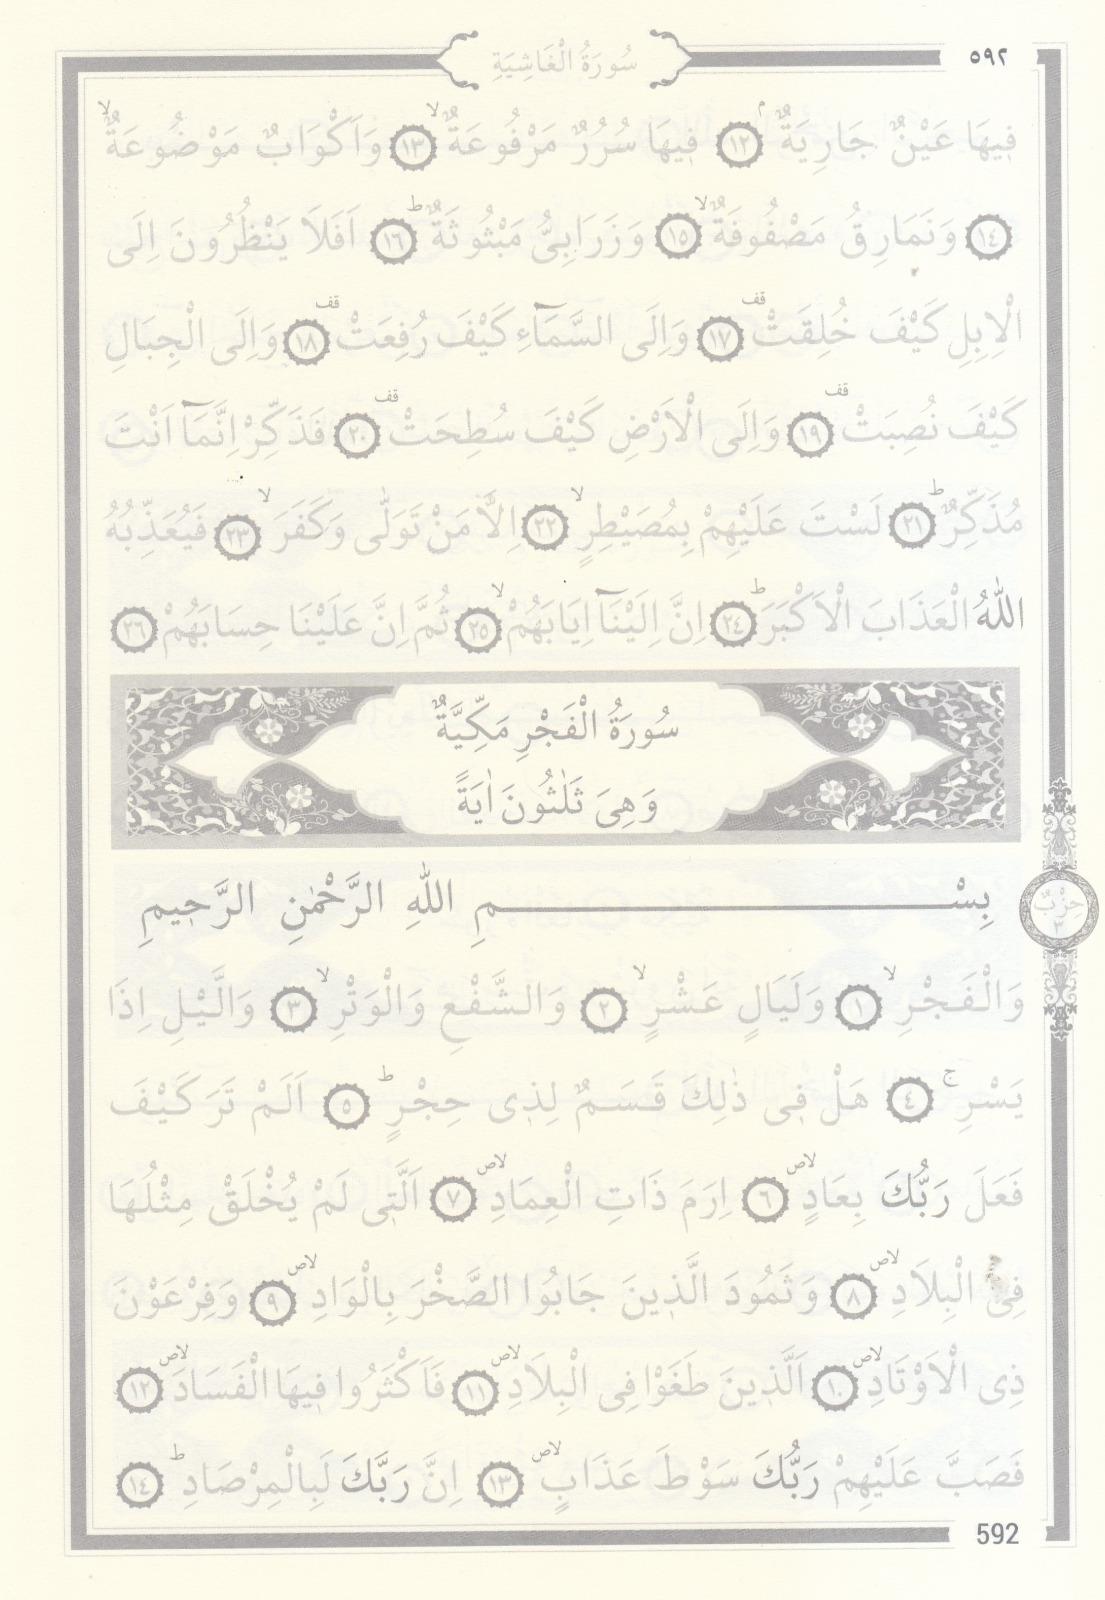 ٥٩٢
سُورَةُ الْغَاشِيَةِ
فِيهَا عَيْنٌ جَارِيَةٌۢ ﴿١٢﴾ فِيهَا سُرُرٌ مَرْفُوعَةٌۙ ﴿١٣﴾ وَاَكْوَابٌ مَوْضُوعَةٌۙ
﴿١٤﴾ وَنَمَارِقُ مَصْفُوفَةٌۙ ﴿١٥﴾ وَزَرَابِيُّ مَبْثُوثَةٌۜ ﴿١٦﴾ اَفَلَا يَنْظُرُونَ اِلَى
الْاِبِلِ كَيْفَ خُلِقَتْ۠ ﴿١٧﴾ وَاِلَى السَّمَٓاءِ كَيْفَ رُفِعَتْ۠ ﴿١٨﴾ وَاِلَى الْجِبَالِ
كَيْفَ نُصِبَتْ۠ ﴿١٩﴾ وَاِلَى الْاَرْضِ كَيْفَ سُطِحَتْ۠ ﴿٢٠﴾ فَذَكِّرْ اِنَّمَٓا اَنْتَ
مُذَكِّرٌۜ ﴿٢١﴾ لَسْتَ عَلَيْهِمْ بِمُصَيْطِرٍۙ ﴿٢٢﴾ اِلَّا مَنْ تَوَلّٰى وَكَفَرَۙ ﴿٢٣﴾ فَيُعَذِّبُهُ
اللّٰهُ الْعَذَابَ الْاَكْبَرَۜ ﴿٢٤﴾ اِنَّ اِلَيْنَٓا اِيَابَهُمْۙ ﴿٢٥﴾ ثُمَّ اِنَّ عَلَيْنَا حِسَابَهُمْ ﴿٢٦﴾
سُورَةُ الْفَجْرِ مَكِّيَّةٌ
وَهِيَ ثَلٰثُونَ اٰيَةً
بِسْمِ اللّٰهِ الرَّحْمٰنِ الرَّحِيمِ
حِزْبٌ
٣
وَالْفَجْرِۙ ﴿١﴾ وَلَيَالٍ عَشْرٍۙ ﴿٢﴾ وَالشَّفْعِ وَالْوَتْرِۙ ﴿٣﴾ وَالَّيْلِ اِذَا
يَسْرِۚ ﴿٤﴾ هَلْ فِي ذٰلِكَ قَسَمٌ لِذِي حِجْرٍۜ ﴿٥﴾ اَلَمْ تَرَ كَيْفَ
فَعَلَ رَبُّكَ بِعَادٍۙ ﴿٦﴾ اِرَمَ ذَاتِ الْعِمَادِۙ ﴿٧﴾ اَلَّتِي لَمْ يُخْلَقْ مِثْلُهَا
فِي الْبِلَادِۙ ﴿٨﴾ وَثَمُودَ الَّذِينَ جَابُوا الصَّخْرَ بِالْوَادِۙ ﴿٩﴾ وَفِرْعَوْنَ
ذِي الْاَوْتَادِۙ ﴿١٠﴾ اَلَّذِينَ طَغَوْا فِي الْبِلَادِۙ ﴿١١﴾ فَاَكْثَرُوا فِيهَا الْفَسَادَۙ ﴿١٢﴾
فَصَبَّ عَلَيْهِمْ رَبُّكَ سَوْطَ عَذَابٍۙ ﴿١٣﴾ اِنَّ رَبَّكَ لَبِالْمِرْصَادِۜ ﴿١٤﴾
592